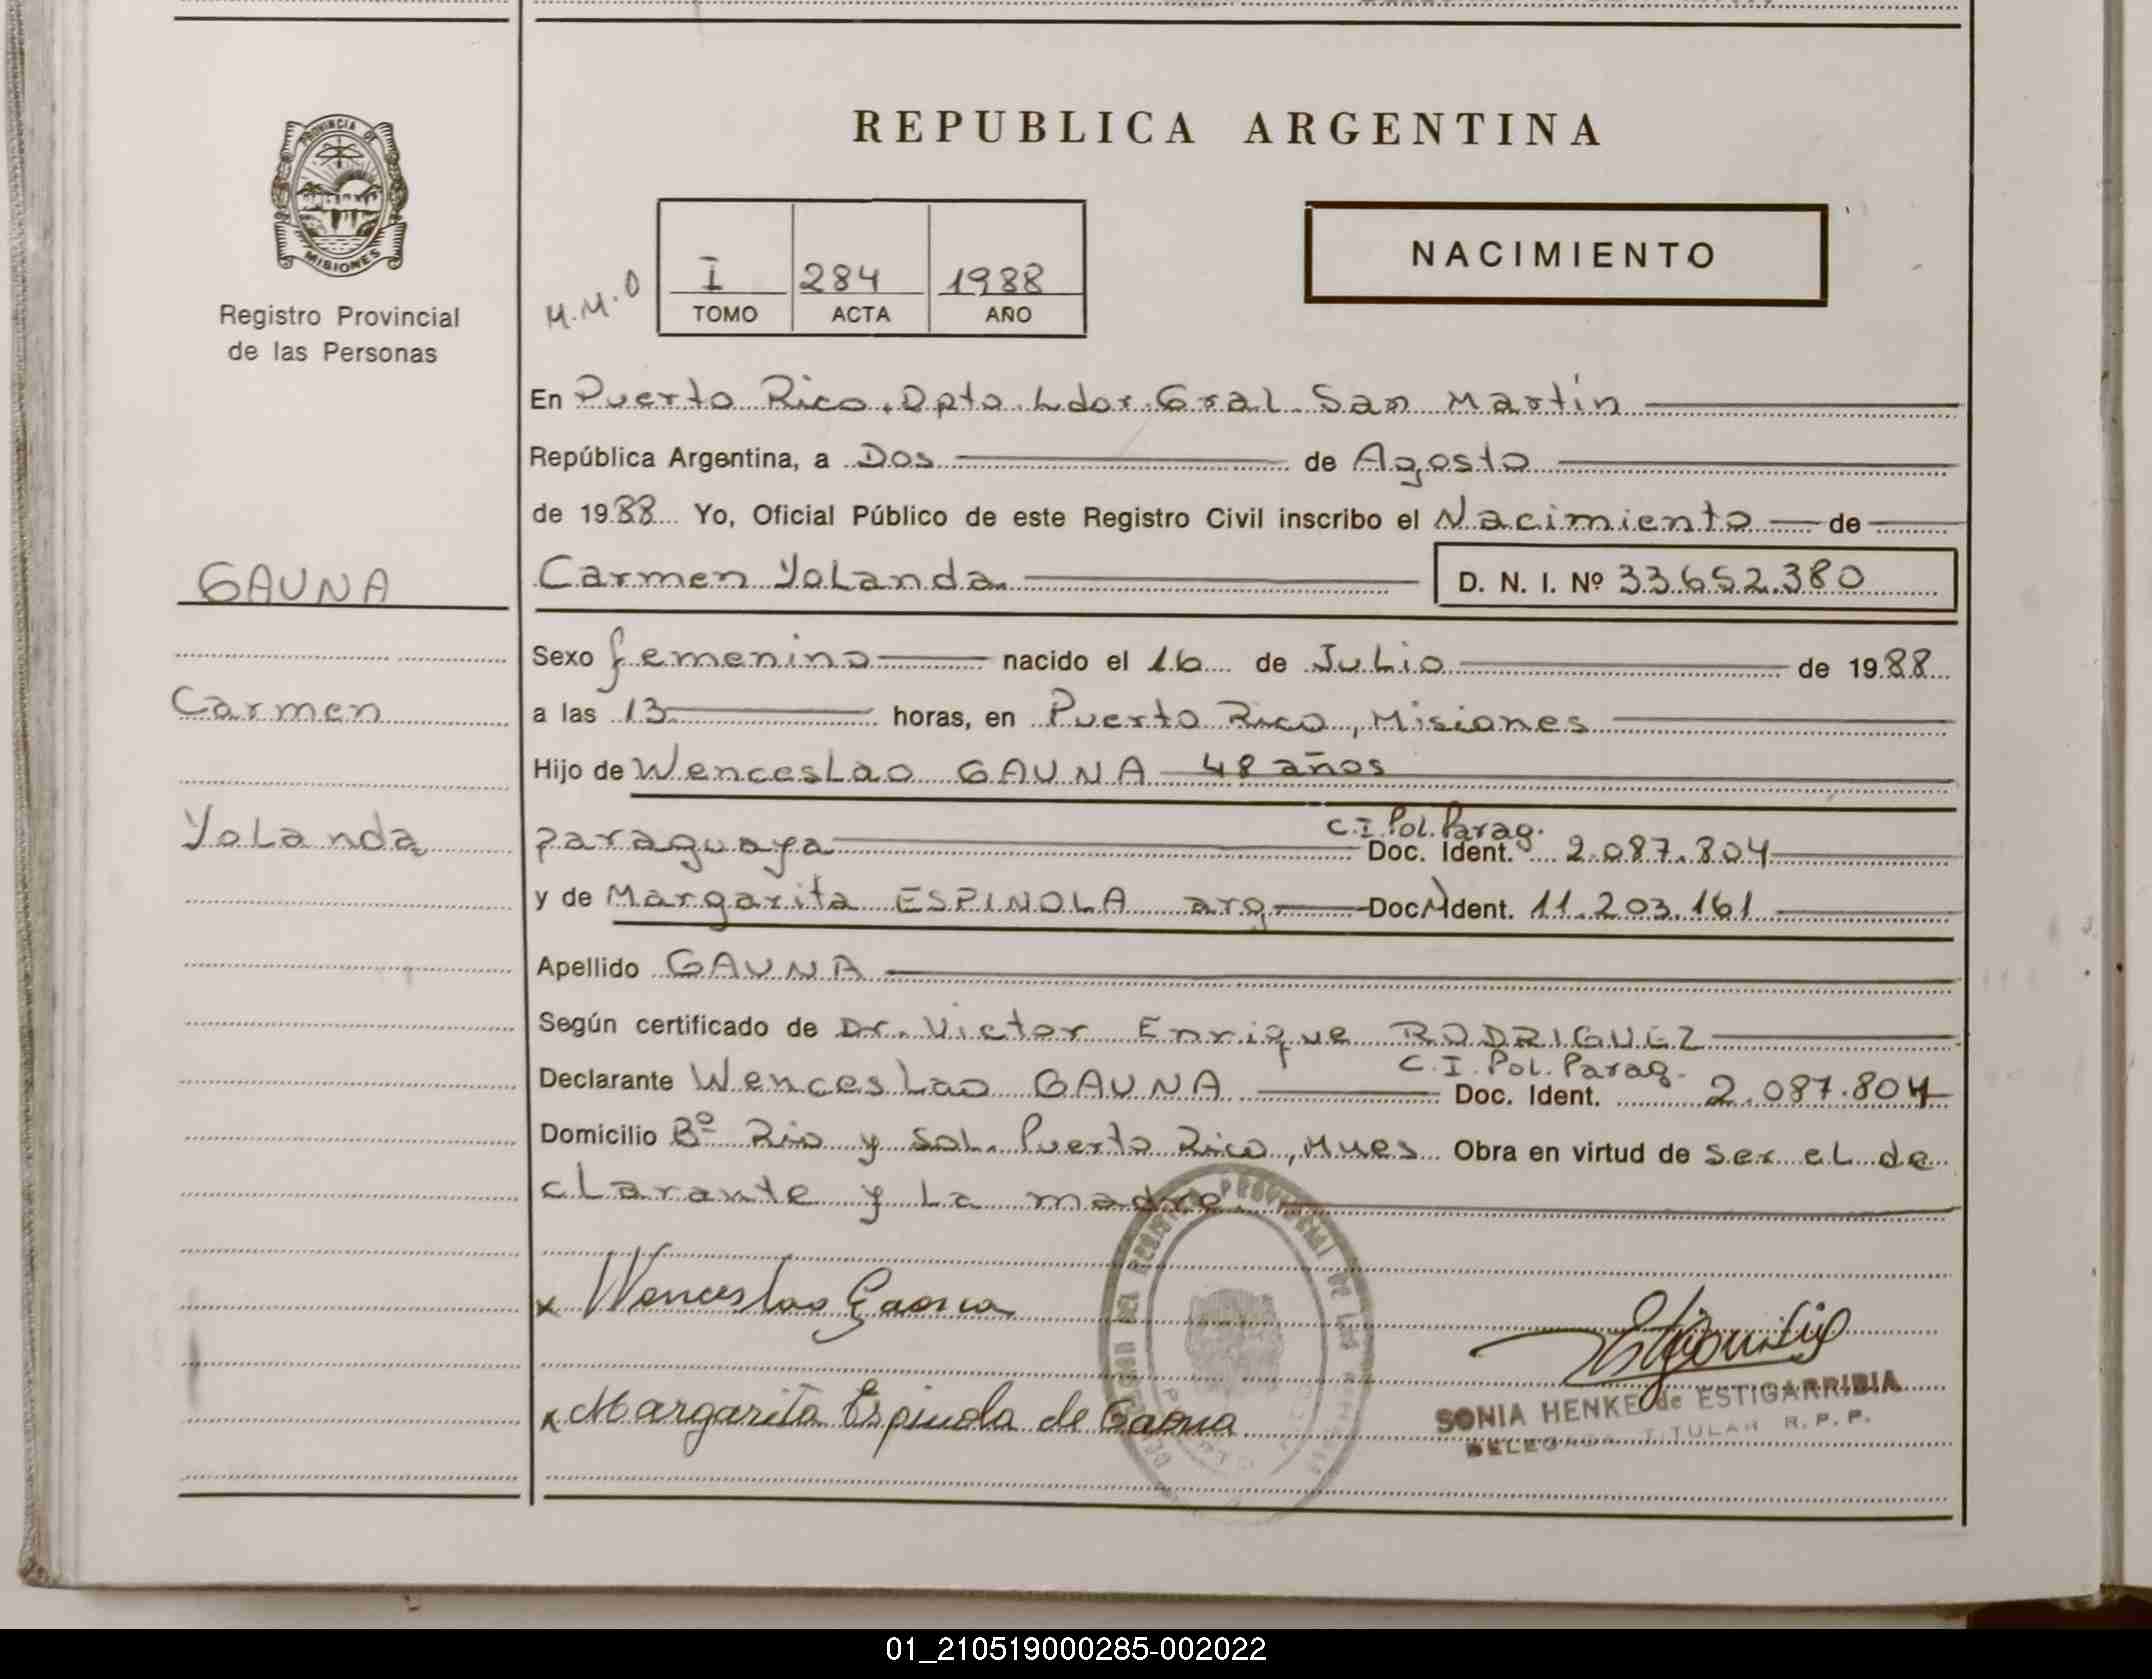 PROVINCIA DE
MISIONES
Registro Provincial
de las Personas
REPUBLICA ARGENTINA
NACIMIENTO
M.M.O
I 284 1988
TOMO ACTA AÑO
En Puerto Rico. Dpto. Ldor. Gral. San Martín
República Argentina, a Dos de Agosto
de 1988 Yo, Oficial Público de este Registro Civil inscribo el Nacimiento de
GAUNA
Carmen Yolanda D. N. I. Nº 33.652.380
Sexo femenino nacido el 16 de Julio de 1988
Carmen
a las 13 horas, en Puerto Rico, Misiones
Hijo de Wenceslao GAUNA 48 años
Yolanda
C.I. Pol. Parag.
paraguaya Doc. Ident. 2.087.804
y de Margarita ESPINOLA arg. Doc. Ident. 11.203.161
Apellido GAUNA
Según certificado de Dr. Victor Enrique RODRIGUEZ
C.I. Pol. Parag.
Declarante Wenceslao GAUNA Doc. Ident. 2.087.804
Domicilio Bº Rio y Sol. Puerto Rico, Mnes Obra en virtud de ser el de
clarante y la madre
x Wenceslao Gaona
x Margarita Espinola de Gaona
SONIA HENKE de ESTIGARRIBIA
DELEGADA TITULAR R. P. P.
01_210519000285-002022